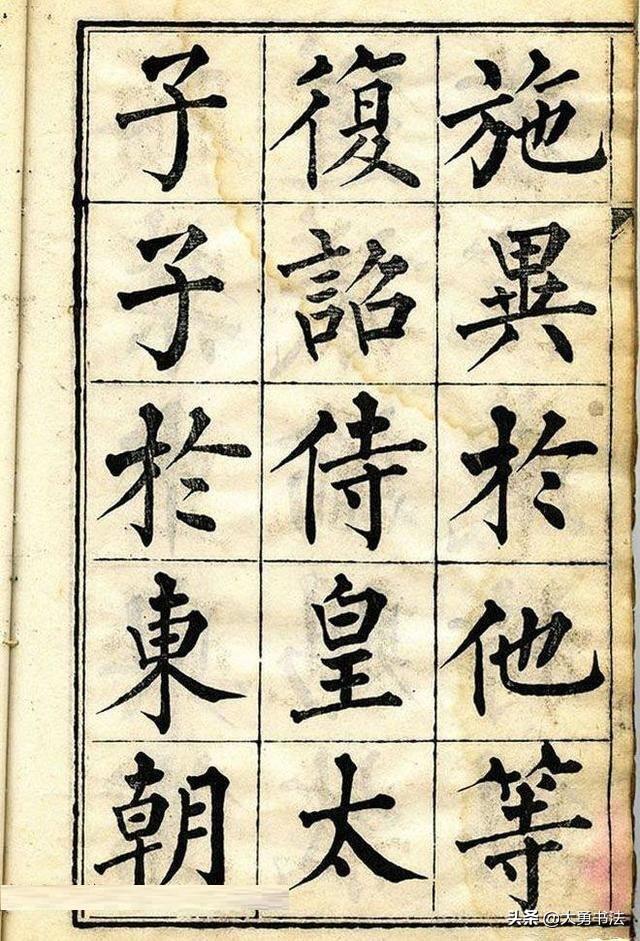 施異於他等
復詔侍皇太
子子於東朝
头条 @大勇书法